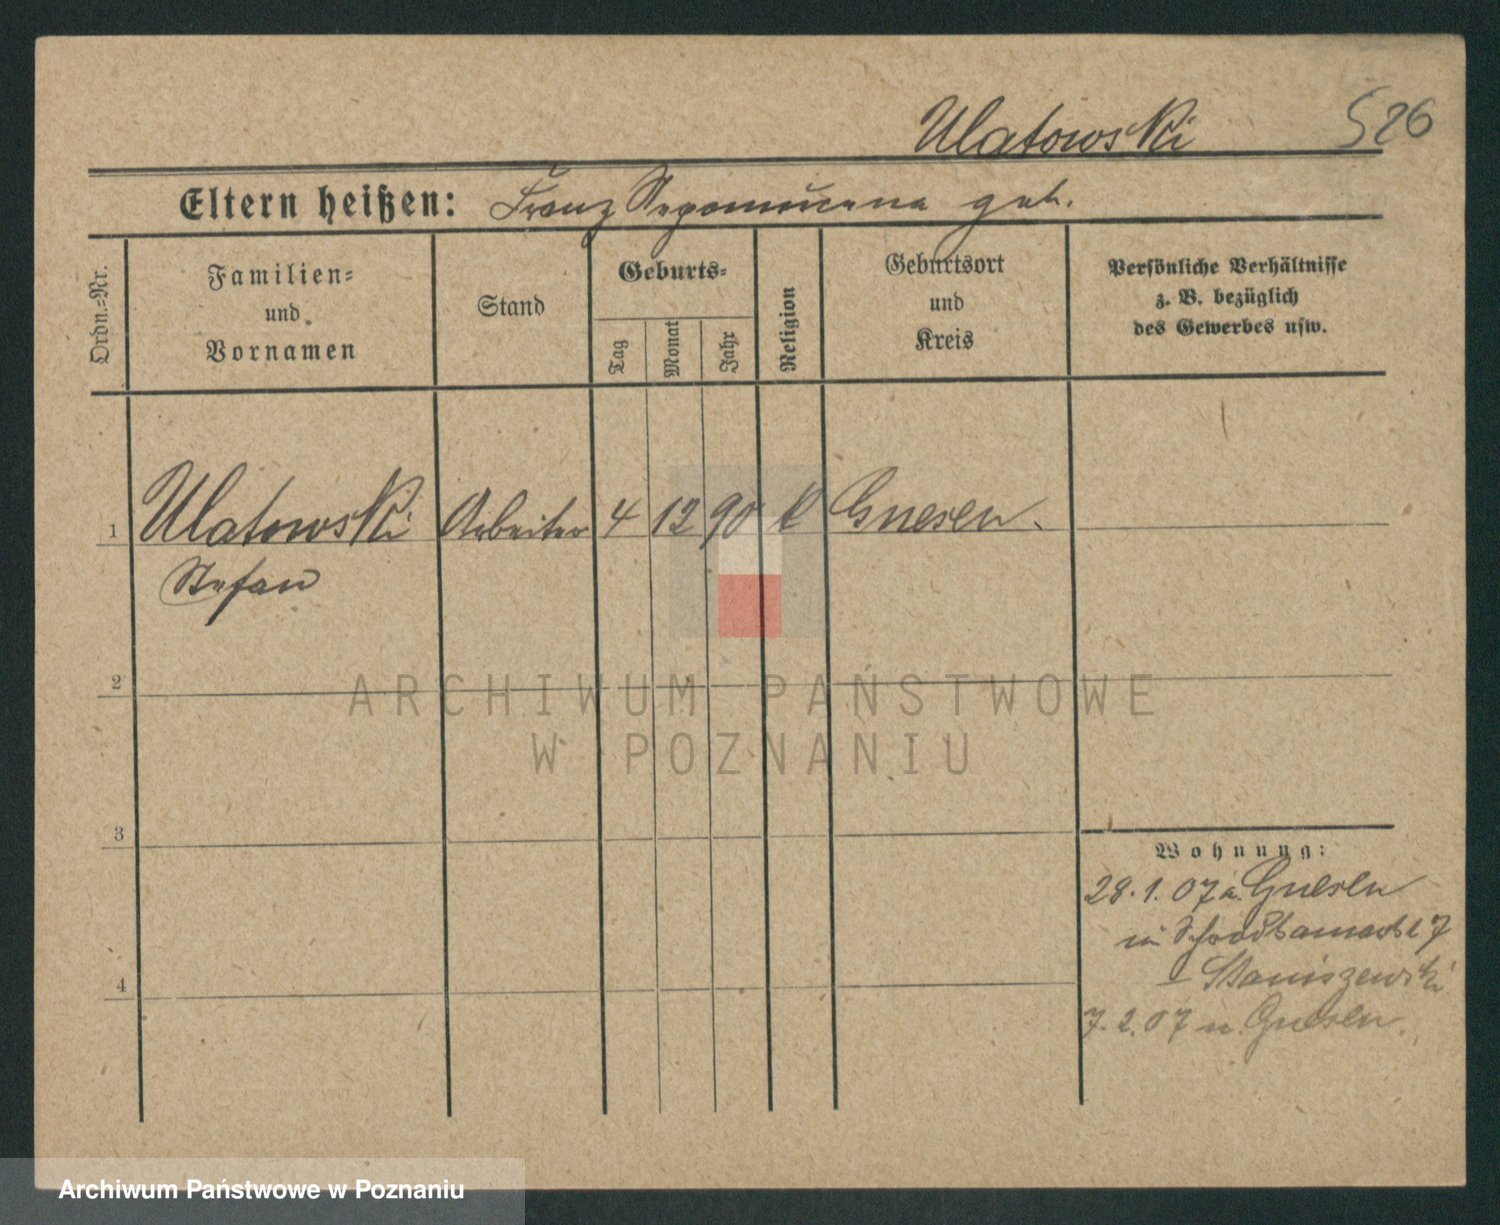 Ulatowski 526
Eltern heißen: Franz Nepomucena geb.
Ordn.=Nr.
Familien=
und
Vornamen
Stand
Geburts=
Tag
Monat
Jahr
Religion
Geburtsort
und
Kreis
Persönliche Verhältnisse
z. B. bezüglich
des Gewerbes usw.
1 Ulatowski Arbeiter 4 12 90 k Gnesen.
Stefan
2
ARCHIWUM PAŃSTWOWE
W POZNANIU
3
Wohnung:
28.1.07 a. Gnesen
7
Staniszewski
4
7.2.07 n. Gnesen.
Archiwum Państwowe w Poznaniu